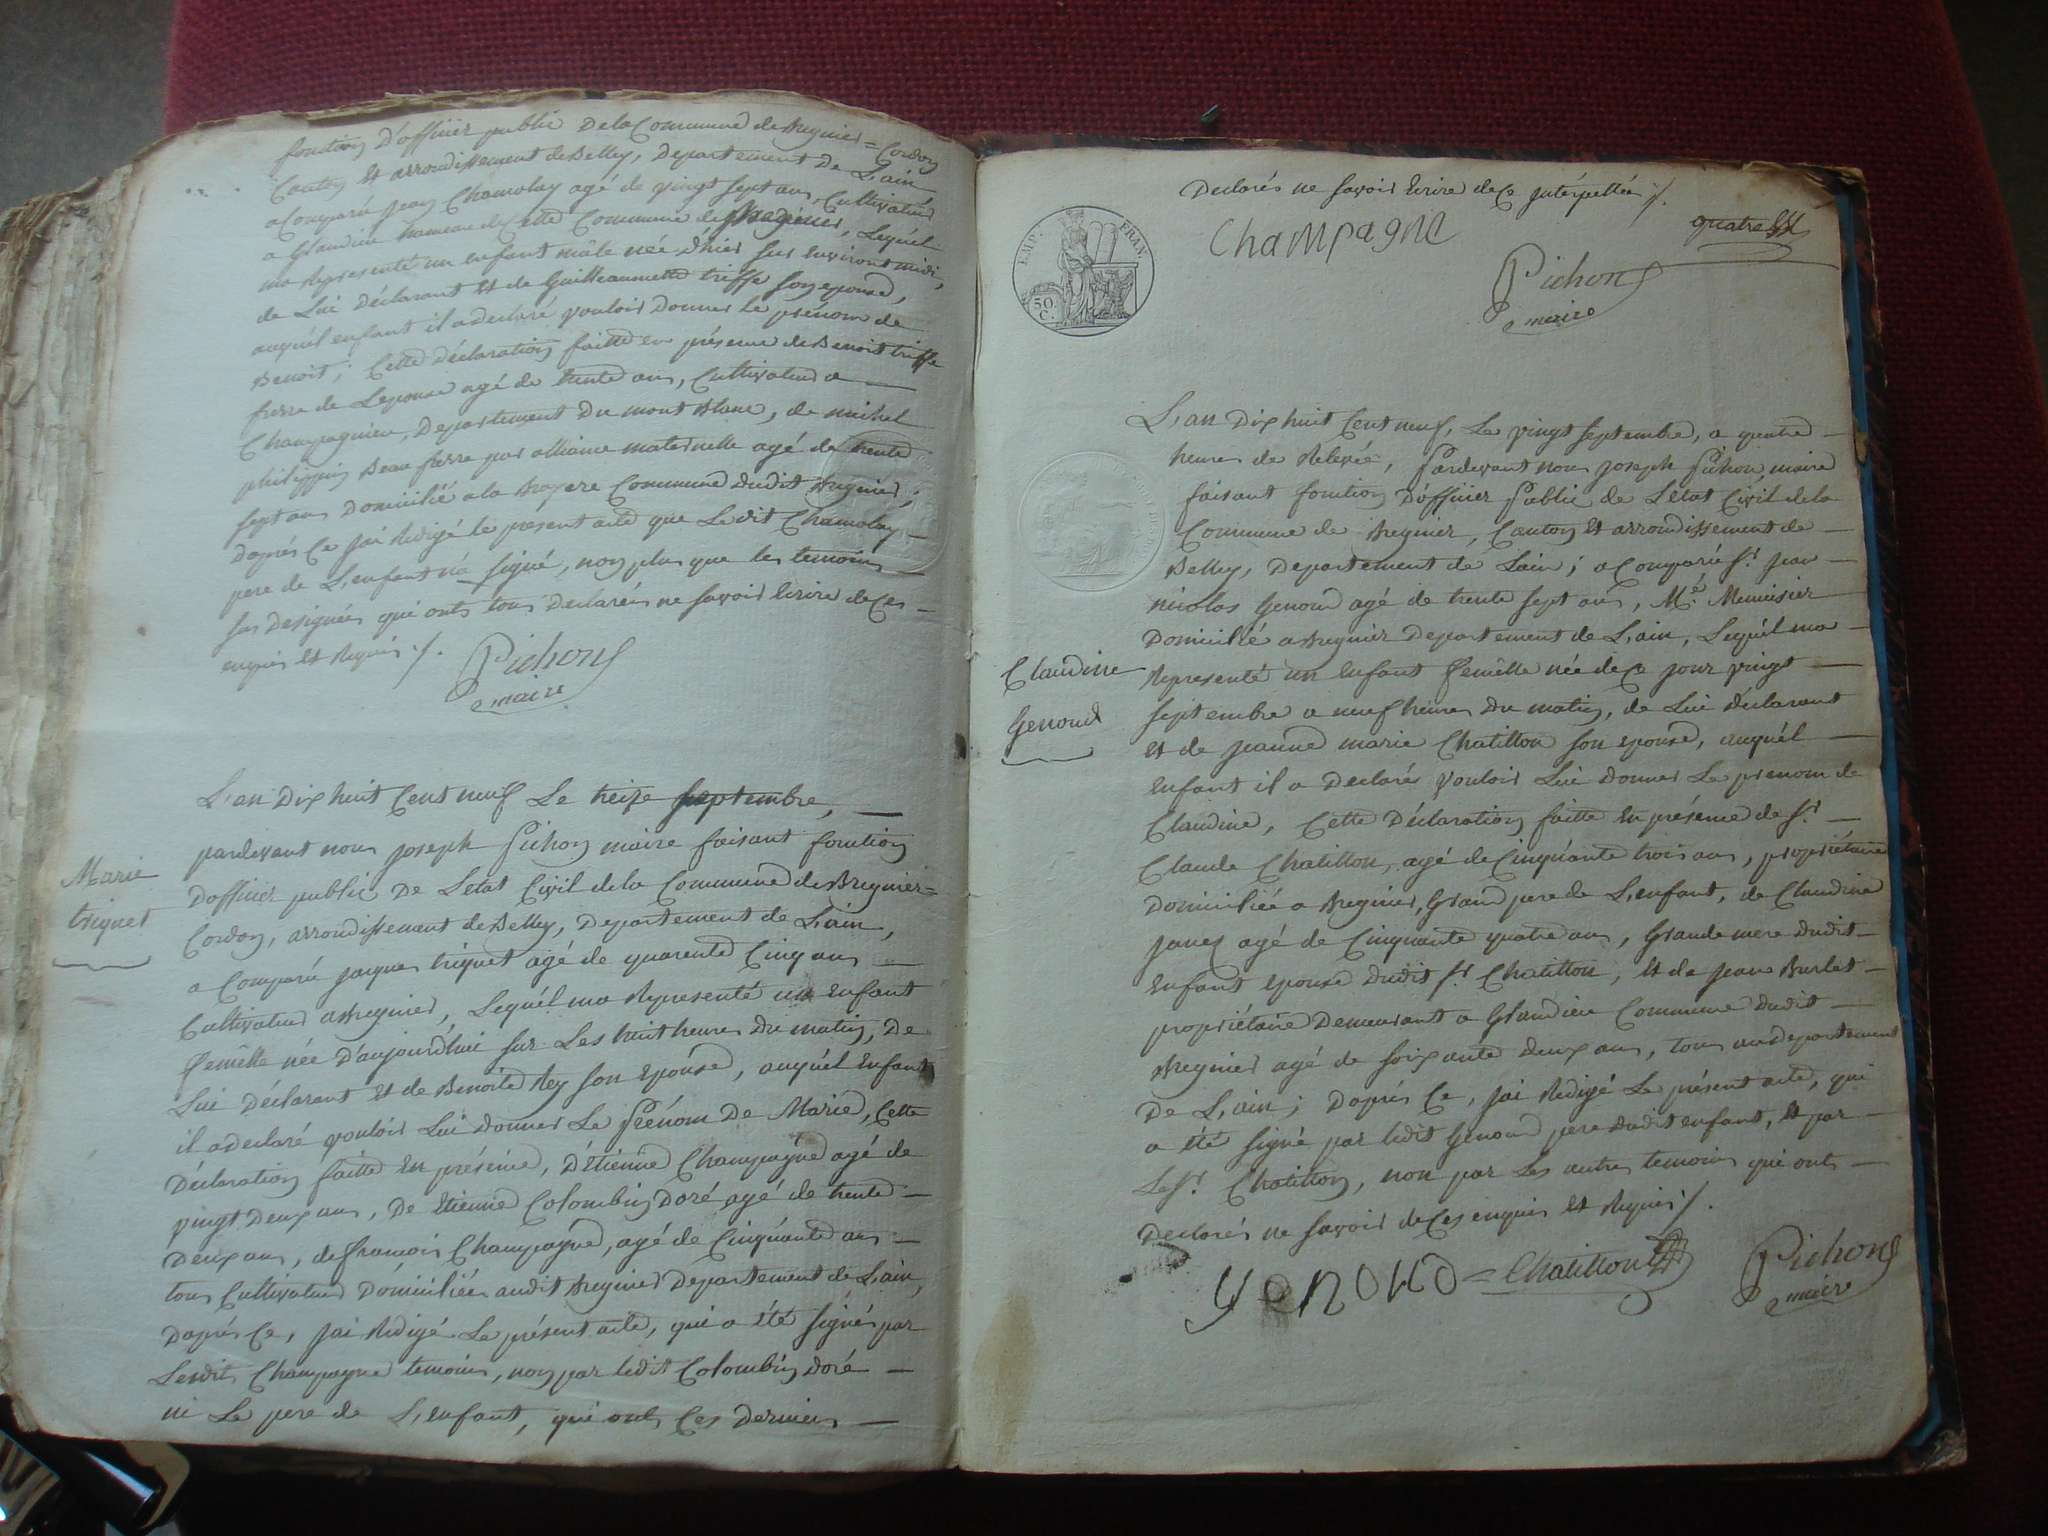 fonction D'officier public De la Commune de Bregnier = Cordon
Canton et arrondissement de Belley, Departement De L'ain
a Comparu jean Chamolay agé de vingt sept ans, Cultivateur
a Glandieu hameau de Cette Commune de Bregnier, Lequél
ma Representé un enfant mâle née D'hier sur environt midi,
de Lui Déclarant et de Guilleaumette triffe son epouse,
auquél enfant il a declaré vouloir Donner Le prénom de
Benoit; Cette Déclaration faitte en présence de Benoit triffe
frere de L'epouse agé de trente ans, Cultivateur a
Champagnieu, Departement Du mont Blanc, de michel
philippin Beau frere par alliance maternelle agé de trente
sept ans Domicilié a la Commune dudit Bregnier;
Daprés Ce jai Redigé le present acte que Ledit Chamolay
pere de L'enfant n'a signé, non plus que les temoins
sus designées qui onts tous Déclarées ne savoir Ecrire de Ces
enquis et Requis ./.
Pichon
maire
L'an Dix huit Cent neuf Le treize septembre,
pardevant nous joseph Pichon maire faisant fonction
D'officier public De Letat Civil de la Commune de Bregnier =
Cordon, arrondissement de Belley, Departement de L'ain,
a Comparu jaques triquet agé de quarente Cinq ans
Cultivateur a Bregnier, Lequél ma Representé un enfant
femélle née D'aujourd'hui sur Les huit heures Du matin, De
Lui Déclarant et de Benoite Rey son Epouse, auquél enfant
il a declaré vouloir Lui donner Le Prénom De Marie, Cette
Déclaration faitte en présence, D'Etienne Champagne agé de
vingt Deux ans, De Etienne Colombin Doré agé de trente
Deux ans, de francois Champagne, agé de Cinquante ans
tous Cultivateurs Domiciliées audit Bregnier Departement de L'ain,
Daprés Ce, jai Redigé Le présent acte, qui a été signés par
Lesdits Champagne temoins, non par Ledit Colombin Doré
ni Le pere de L'enfant, qui onts Ces Derniers
Marie
triquet
Declarés ne savoir Ecrire de Ce jnterpellés ./.
EMP. FRAN.
50 C.
Champagne
Pichon
maire
L'an Dix huit Cent neuf, Le vingt septembre, a quatre
heures de Relevée, Pardevant nous joseph Pichon maire
faisant fonction D'officier Public de Letat Civil de la
Commune de Bregnier, Canton et arrondissement de
Belley, Departement de L'ain; a Comparû Sr. jean
nicolas Genoud agé de trente sept ans, Me. Menuisier
Domicilié a Bregnier Departement de L'ain, Lequél ma
Representé un enfant femélle née de Ce jour vingt
septembre a neuf heures Du matin, de Lui déclarant
et de jeanne marie Chatillon son epouse, auquél
enfant il a Declarés vouloir Lui donner Le prenom de
Claudine, Cette Déclaration faitte en présence de Sr.
Claude Chatillon, agé de Cinquante trois ans, propriétaire
Domiciliée a Bregnier, Grand pere de L'enfant, de Claudine
Janez agé de Cinquante quatre ans, Grande mere dudit
enfant epouse Dudit Sr. Chatillon, et de jean Burlet
propriétaire Demeurant a Glandieu Commune dudit
Bregnier agé de soixante deux ans, tous au departement
De L'ain; Daprés Ce, jai Redigé Le présent acte, qui
a été signé par ledit Genoud pere dudit enfant, et par
Le Sr. Chatillon, non par Les autres temoins qui onts
Declarés ne savoir de Ces enquis et Requis ./.
Claudine
Genoud
genoud = Chatillon
Pichon
maire